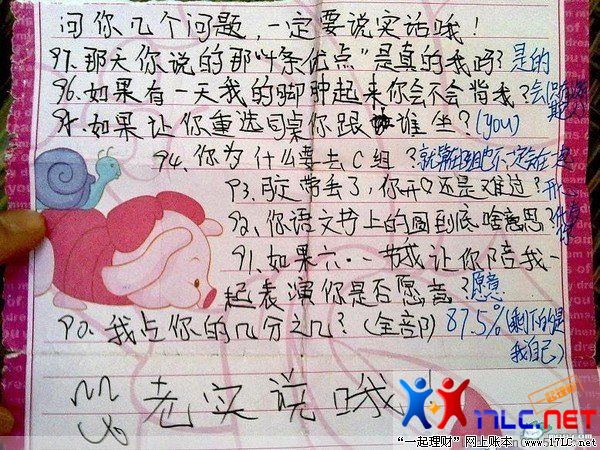 问你几个问题，一定要说实话哦！
97.那天你说的那"4条优点"是真的我吗？是的
96.如果有一天我的脚肿起来你会不会背我？会
95.如果让你重选同桌你跟谁坐？(you)
94.你为什么要去C组？
93.胶带丢了，你开心还是难过？开心
92.你语文书上的图到底啥意思？
91.如果六·一节或让你陪我一
起表演你是否愿意？愿意
90.我占你的几分之几？(全部) 87.5%(剩下的是
我自己)
老实说哦
一起理财
17LC.NET
"一起理财"网上账本 www.17LC.net